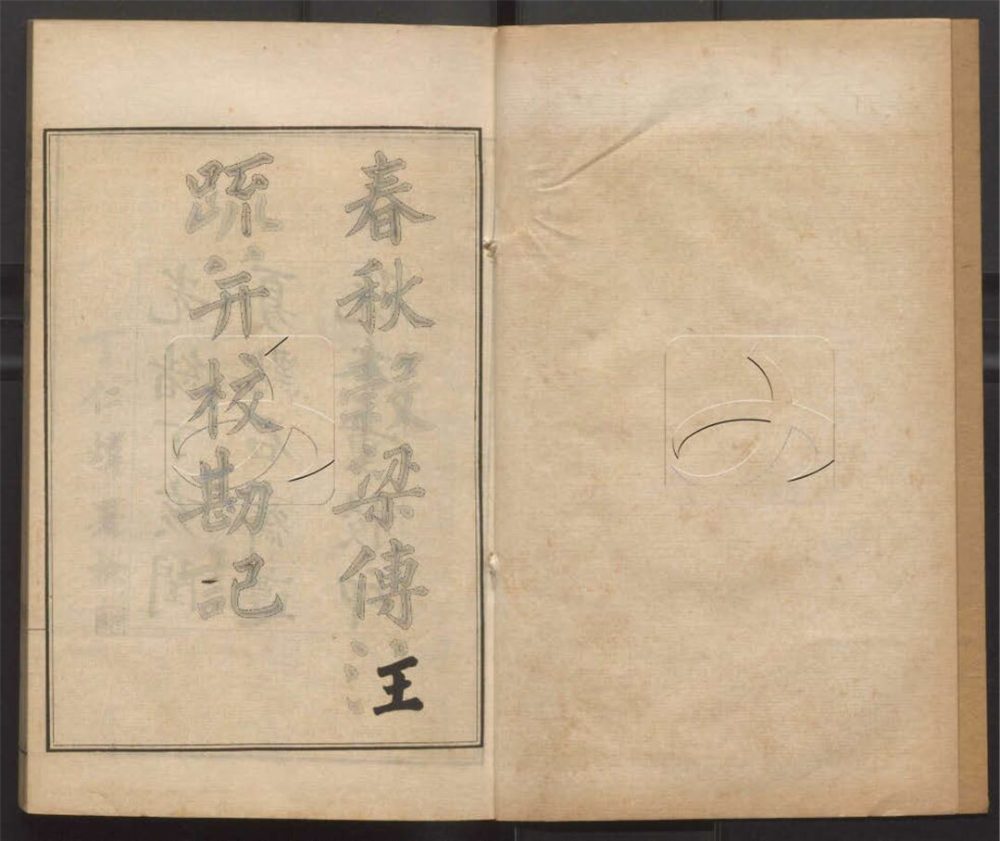 春秋穀梁傳注
疏并校勘記